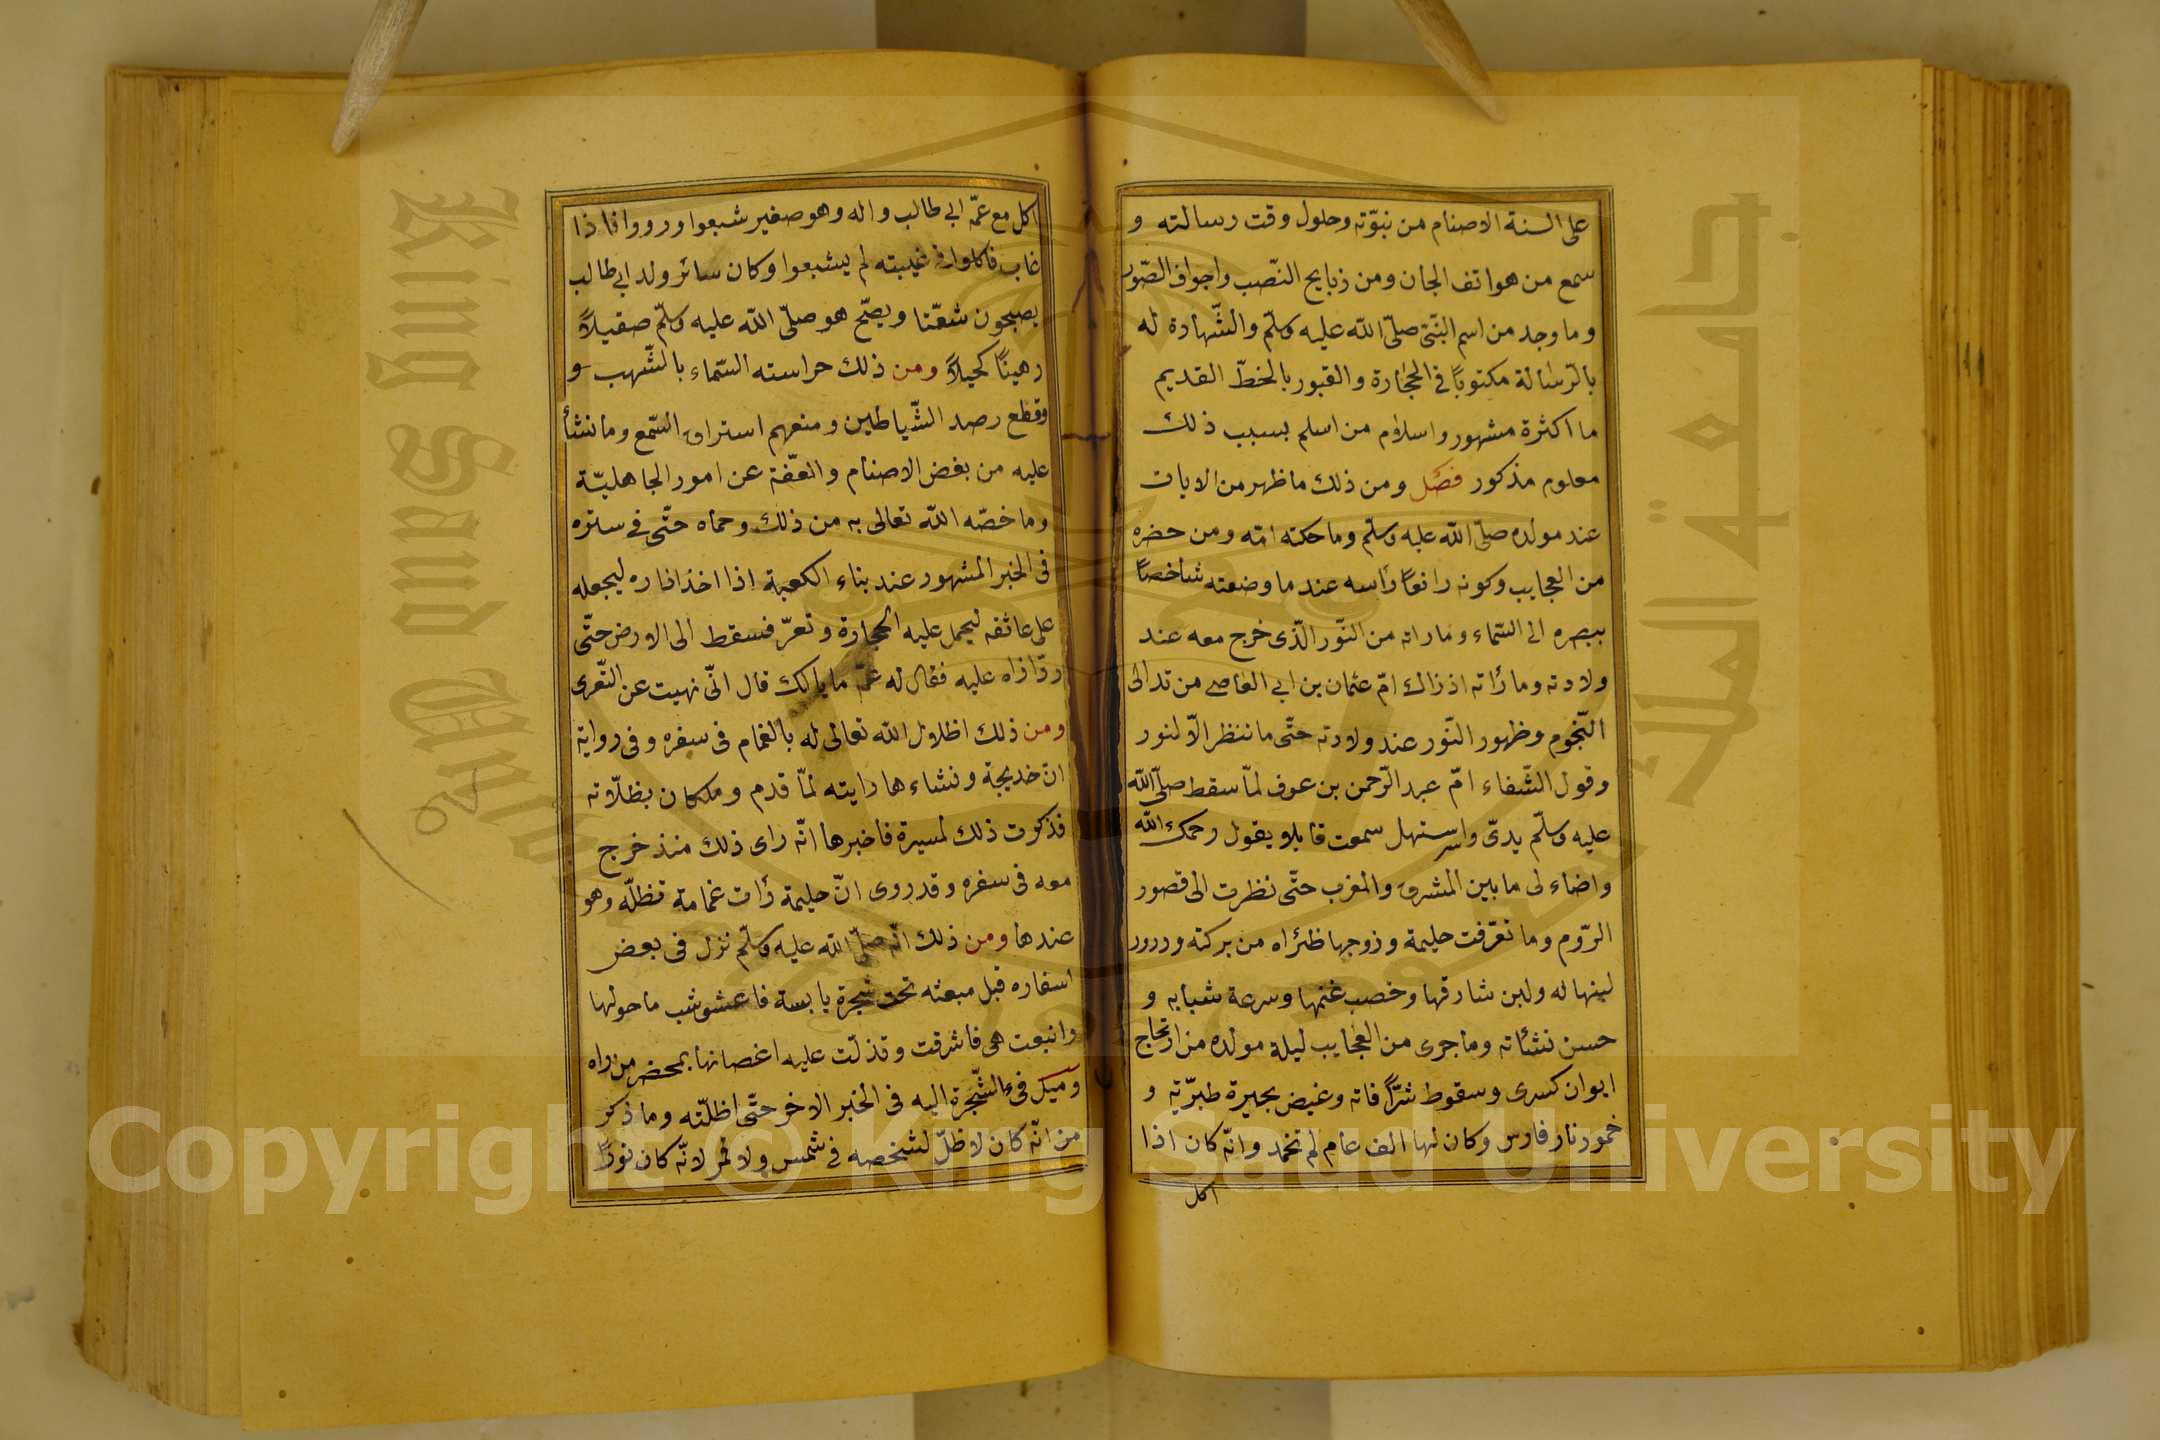 على السنة الاصنام من نبوّته وحلول وقت رسالته و
سمع من هواتف الجان ومن ذبايح النّصب واجواف الصّور
وما وجد من اسم النّبىّ صلّى اللّه عليه وسلّم والشّهادة له
بالرّسالة مكتوبًا فى الحجارة والقبور بالخطّ القديم
ما اكثرة مشهور واسلام من اسلم بسبب ذلك
معلوم مذكور فصل ومن ذلك ما ظهر من الايات
عند مولده صلّى اللّه عليه وسلّم وما حكته امّه ومن حضره
من العجايب وكونه رافعًا رأسه عند ما وضعته شاخصًا
ببصره الى السّماء وما راته من النّور الّذى خرج معه عند
ولادته وما رأته اذ ذاك امّ عثمان بن ابى العاصى من تدالى
النّجوم وظهور النّور عند ولادته حتّى ما تنظر الّا لنور
وقول الشّفاء امّ عبد الرّحمن بن عوف لمّا سقط صلّى اللّه
عليه وسلّم يدىّ واستهل سمعت قايلا يقول رحمك اللّه
واضاء لى ما بين المشرق والمغرب حتّى نظرت الى قصور
الرّوم وما تعرّفت حليمة وزوجها ظئراه من بركته ودرور
لبنها له ولبن شارفها وخصب غنمها وسرعة شبابه و
حسن نشأته وما جرى من العجايب ليلة مولده من ارتجاج
ايوان كسرى وسقوط شرّافاته وغيض بحيرة طبرّية و
خمود نار فارس وكان لها الف عام لم تخمد وانّه كان اذا
اكل
اكل مع عمّه ابى طالب واله وهو صغير شبعوا ورووا فاذا
غاب فاكلوا فى غيبته لم يشبعوا وكان سائر ولد ابى طالب
يصبحون شعّثا ويصبح هو صلّى اللّه عليه وسلّم صقيلاً
رهينًا كحيلاً ومن ذلك حراسته السّماء بالشّهب و
وقطع رصد الشّياطين ومنعهم استراق السّمع وما نشأ
عليه من بغض الاصنام والعفّة عن امور الجاهليّة
وما خصّه اللّه تعالى به من ذلك وحماه حتّى فى ستره
فى الخبر المشهور عند بناء الكعبة اذا اخذ اذاره ليجعله
على عاتقه ليحمل عليه الحجارة وتعرّ فسقط الى الارض حتّى
ردّ ازاه عليه فقال له عمّه ما بالك قال انّى نهيت عن التّعرى
ومن ذلك اظلال اللّه تعالى له بالغمام فى سفره وفى رواية
انّ خديجة ونشاءها رايته لمّا قدم وملكان يظلّانه
فذكرت ذلك لميسرة فاخبرها انّه راى ذلك منذ خرج
معه فى سفره وقد روى انّ حليمة رأت غمامة تظلّه وهو
عندها ومن ذلك انّه صلّى اللّه عليه وسلّم نزل فى بعض
اسفاره قبل مبعثه تحت شجرة يابسة فاعشوشب ما حولها
وانبعت هى فاشرقت وتذلّت عليه اغصانها بمحضر من راه
وميل فىء الشّجرة اليه فى الخبر الاخر حتّى اظلّته وما ذكر
من انّه كان لا ظلّ لشخصه فى شمس ولا قمر لانّه كان نورًا
King Saud University
جامعة الملك سعود
Copyright © King Saud University